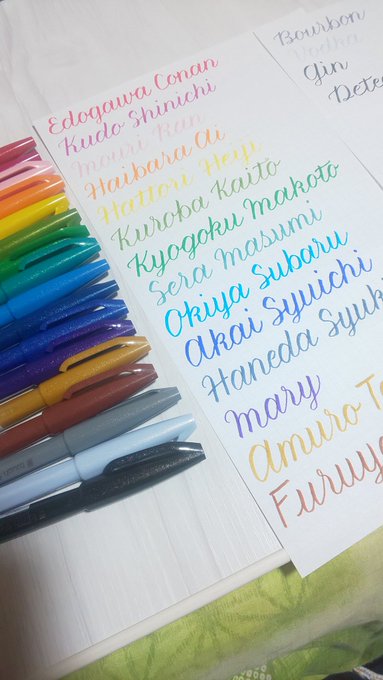 Edogawa Conan
Kudo Shinichi
Mouri Ran
Haibara Ai
Hattori Heiji
Kuroba Kaito
Kyogoku Makoto
Sera Masumi
Okiya Subaru
Akai Syuichi
Haneda Syuk
mary
Amuro T
Furuya
Bourbon
Vodka
Gin
Dete